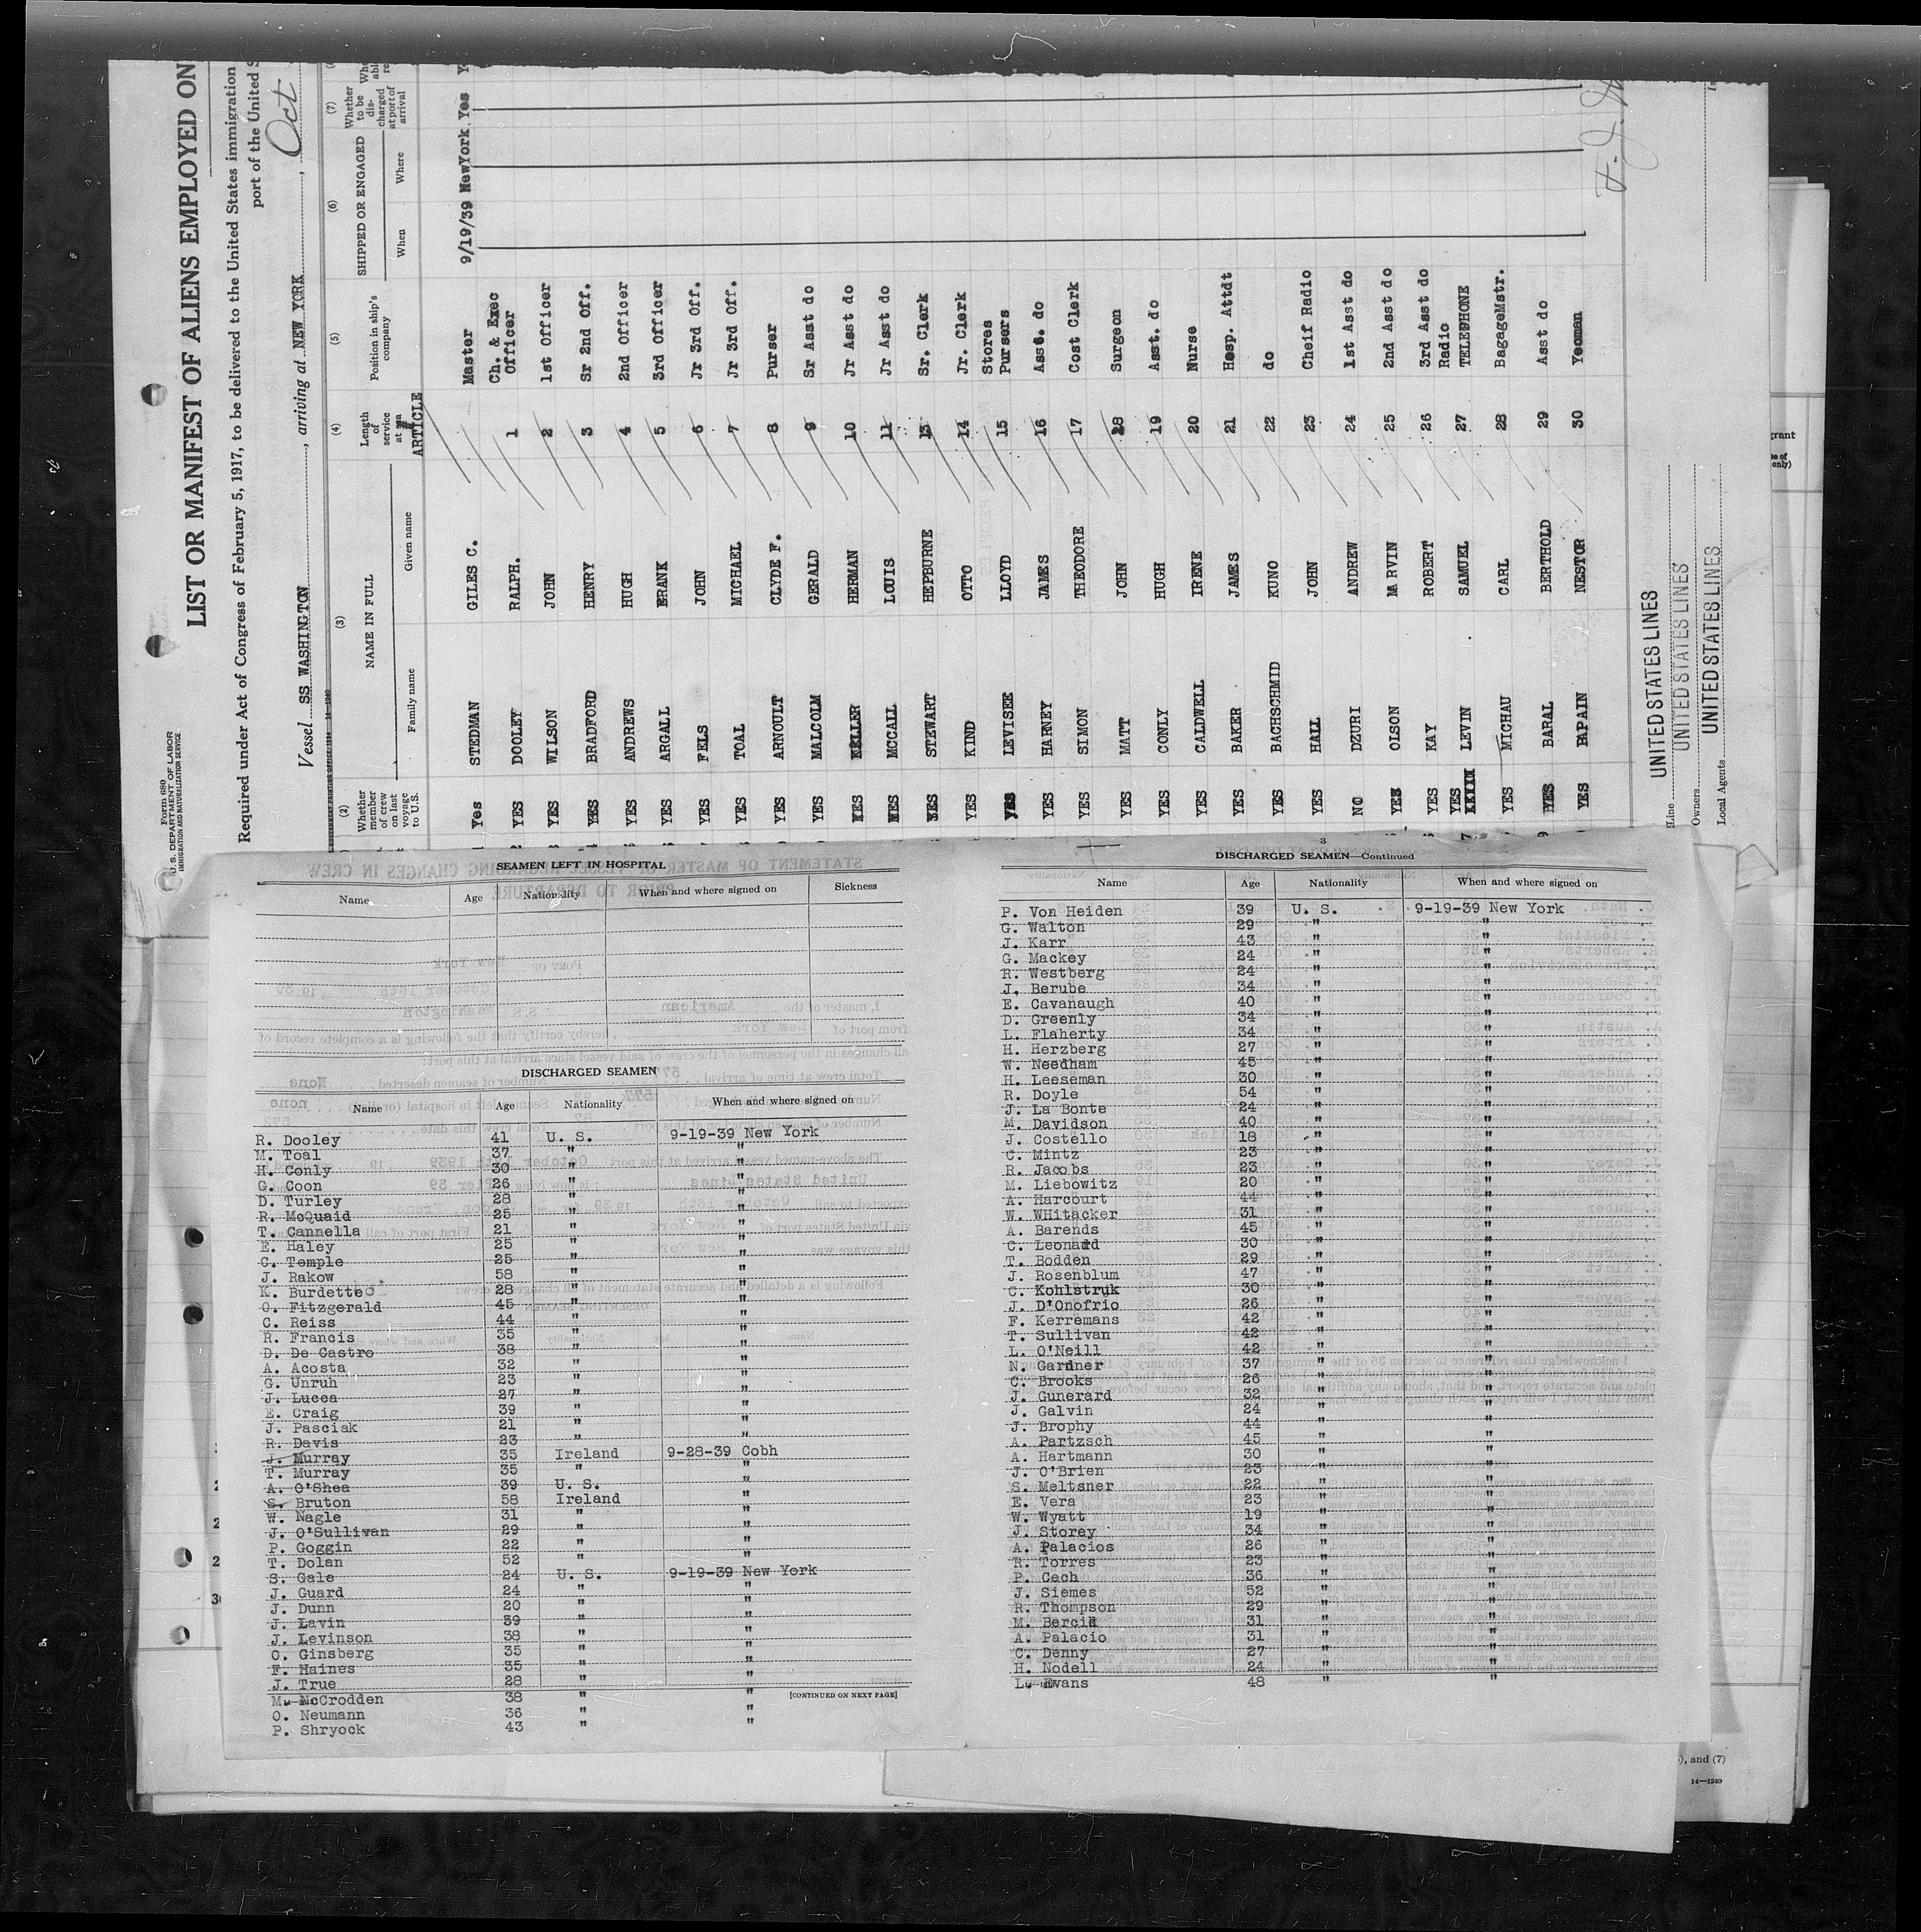 Form 680
U.S. DEPARTMENT OF LABOR
IMMIGRATION AND NATURALIZATION SERVICE
LIST OR MANIFEST OF ALIENS EMPLOYED ON
Required under Act of Congress of February 5, 1917, to be delivered to the United States immigration
port of the United S
Vessel SS WASHINGTON, arriving at NEW YORK, Oct
(2) (3) (4) (5) (6) (7)
Whether member of crew on last voyage to U.S. NAME IN FULL Family name Given name Length of service at sea # ARTICLE Position in ship's company SHIPPED OR ENGAGED When Where Whether to be discharged at port of arrival
Yes STEDMAN GILES C. Master 9/19/39 NewYork Yes
YES DOOLEY RALPH. 1 Ch. & Exec Officer
YES WILSON JOHN 2 1st Officer
YES BRADFORD HENRY 3 Sr 2nd Off.
YES ANDREWS HUGH 4 2nd Officer
YES ARGALL FRANK 5 3rd Officer
YES FELS JOHN 6 Jr 3rd Off.
YES TOAL MICHAEL 7 Jr 3rd Off.
YES ARNOULT CLYDE F. 8 Purser
YES MALCOLM GERALD 9 Sr Asst do
YES KELLER HERMAN 10 Jr Asst do
YES MCCALL LOUIS 11 Jr Asst do
YES STEWART HEPBURNE 13 Sr. Clerk
YES KIND OTTO 14 Jr. Clerk
YES LEVISEE LLOYD 15 Stores Pursers
YES HARNEY JAMES 16 Asst. do
YES SIMON THEODORE 17 Cost Clerk
YES MATT JOHN 18 Surgeon
YES CONLY HUGH 19 Asst. do
YES CALDWELL IRENE 20 Nurse
YES BAKER JAMES 21 Hosp. Attdt
YES BACHSCHMID KUNO 22 do
YES HALL JOHN 23 Cheif Radio
NO DZURI ANDREW 24 1st Asst do
YES OLSON MARVIN 25 2nd Asst do
YES KAY ROBERT 26 3rd Asst do
YES LEVIN SAMUEL 27 Radio TELEPHONE
YES MICHAU CARL 28 BagageMstr.
YES BARAL BERTHOLD 29 Asst do
YES PAPAIN NESTOR 30 Yeoman
Line UNITED STATES LINES
Owners UNITED STATES LINES
Local Agents UNITED STATES LINES
SEAMEN LEFT IN HOSPITAL
Name Age Nationality When and where signed on Sickness
DISCHARGED SEAMEN
Name Age Nationality When and where signed on
R. Dooley 41 U. S. 9-19-39 New York
M. Toal 37 " "
H. Conly 30 " "
G. Coon 26 " "
D. Turley 28 " "
R. McQuaid 25 " "
T. Cannella 21 " "
E. Haley 25 " "
C. Temple 25 " "
J. Rakow 58 " "
K. Burdette 28 " "
O. Fitzgerald 45 " "
C. Reiss 44 " "
R. Francis 35 " "
D. De Castro 38 " "
A. Acosta 32 " "
G. Unruh 23 " "
J. Lucca 27 " "
E. Craig 39 " "
J. Pasciak 21 " "
R. Davis 23 " "
J. Murray 35 Ireland 9-28-39 Cobh
T. Murray 35 " "
A. O'Shea 39 U. S. "
S. Bruton 58 Ireland "
W. Nagle 31 " "
J. O'Sullivan 29 " "
P. Goggin 22 " "
T. Dolan 52 " "
S. Gale 24 U. S. 9-19-39 New York
J. Guard 24 " "
J. Dunn 20 " "
J. Lavin 39 " "
J. Levinson 38 " "
O. Ginsberg 35 " "
F. Haines 35 " "
J. True 28 " "
M. McCrodden 38 " "
O. Neumann 36 " "
P. Shryock 43 " "
[CONTINUED ON NEXT PAGE]
3
DISCHARGED SEAMEN—Continued
Name Age Nationality When and where signed on
P. Von Heiden 39 U. S. 9-19-39 New York
G. Walton 29 " "
J. Karr 43 " "
G. Mackey 24 " "
R. Westberg 24 " "
J. Berube 34 " "
E. Cavanaugh 40 " "
D. Greenly 34 " "
L. Flaherty 34 " "
H. Herzberg 27 " "
W. Needham 45 " "
H. Leeseman 30 " "
R. Doyle 54 " "
J. La Bonte 24 " "
M. Davidson 40 " "
J. Costello 18 " "
C. Mintz 23 " "
R. Jacobs 23 " "
M. Liebowitz 20 " "
A. Harcourt 44 " "
W. WHitacker 31 " "
A. Barends 45 " "
C. Leonard 30 " "
T. Bodden 29 " "
J. Rosenblum 47 " "
C. Kohlstruk 30 " "
J. D'Onofrio 26 " "
F. Kerremans 42 " "
T. Sullivan 42 " "
L. O'Neill 42 " "
N. Gardner 37 " "
C. Brooks 26 " "
J. Gunerard 32 " "
J. Galvin 24 " "
J. Brophy 44 " "
A. Partzsch 45 " "
A. Hartmann 30 " "
J. O'Brien 23 " "
S. Meltsner 22 " "
E. Vera 23 " "
W. Wyatt 19 " "
J. Storey 34 " "
A. Palacios 26 " "
R. Torres 23 " "
P. Cach 36 " "
J. Siemes 52 " "
R. Thompson 29 " "
M. Bercik 31 " "
A. Palacio 31 " "
C. Denny 27 " "
H. Nodell 24 " "
L. Evans 48 " "
), and (7)
14—1240